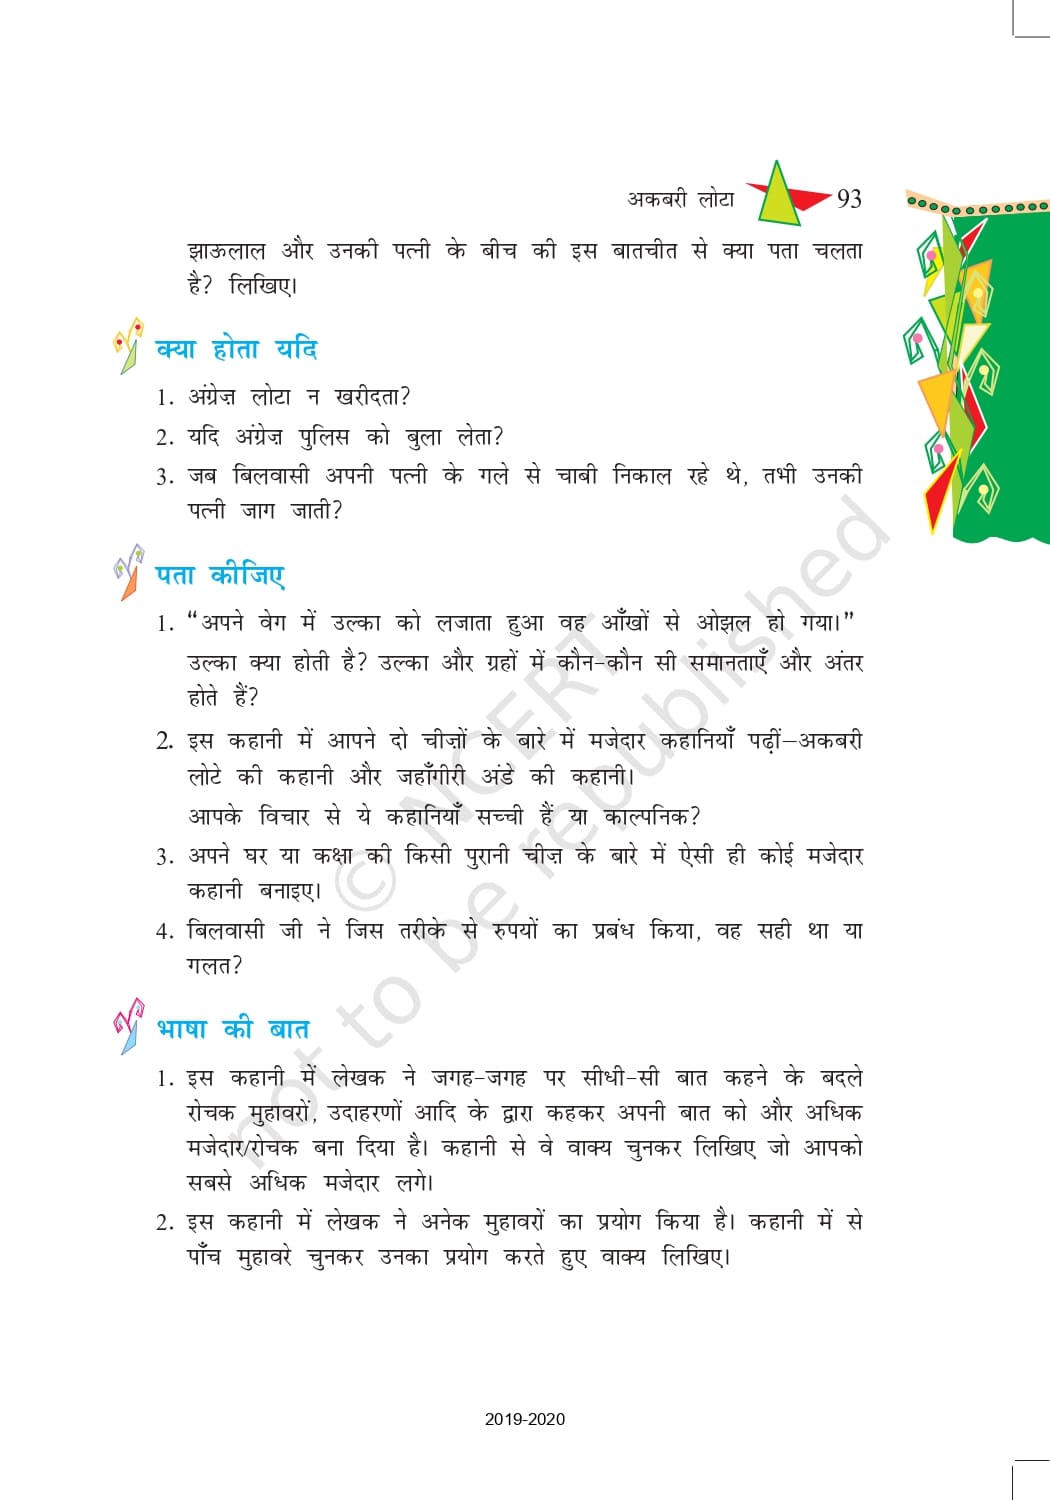 अकबरी लोटा 93
झाऊलाल और उनकी पत्नी के बीच की इस बातचीत से क्या पता चलता
है? लिखिए।
क्या होता यदि
1. अंग्रेज़ लोटा न खरीदता?
2. यदि अंग्रेज़ पुलिस को बुला लेता?
3. जब बिलवासी अपनी पत्नी के गले से चाबी निकाल रहे थे, तभी उनकी
पत्नी जाग जाती?
पता कीजिए
1. “अपने वेग में उल्का को लजाता हुआ वह आँखों से ओझल हो गया।”
उल्का क्या होती है? उल्का और ग्रहों में कौन-कौन सी समानताएँ और अंतर
होते हैं?
2. इस कहानी में आपने दो चीज़ों के बारे में मजेदार कहानियाँ पढ़ीं–अकबरी
लोटे की कहानी और जहाँगीरी अंडे की कहानी।
आपके विचार से ये कहानियाँ सच्ची हैं या काल्पनिक?
3. अपने घर या कक्षा की किसी पुरानी चीज़ के बारे में ऐसी ही कोई मजेदार
कहानी बनाइए।
4. बिलवासी जी ने जिस तरीके से रुपयों का प्रबंध किया, वह सही था या
गलत?
भाषा की बात
1. इस कहानी में लेखक ने जगह-जगह पर सीधी-सी बात कहने के बदले
रोचक मुहावरों, उदाहरणों आदि के द्वारा कहकर अपनी बात को और अधिक
मजेदार/रोचक बना दिया है। कहानी से वे वाक्य चुनकर लिखिए जो आपको
सबसे अधिक मजेदार लगे।
2. इस कहानी में लेखक ने अनेक मुहावरों का प्रयोग किया है। कहानी में से
पाँच मुहावरे चुनकर उनका प्रयोग करते हुए वाक्य लिखिए।
© NCERT
not to be republished
2019-2020